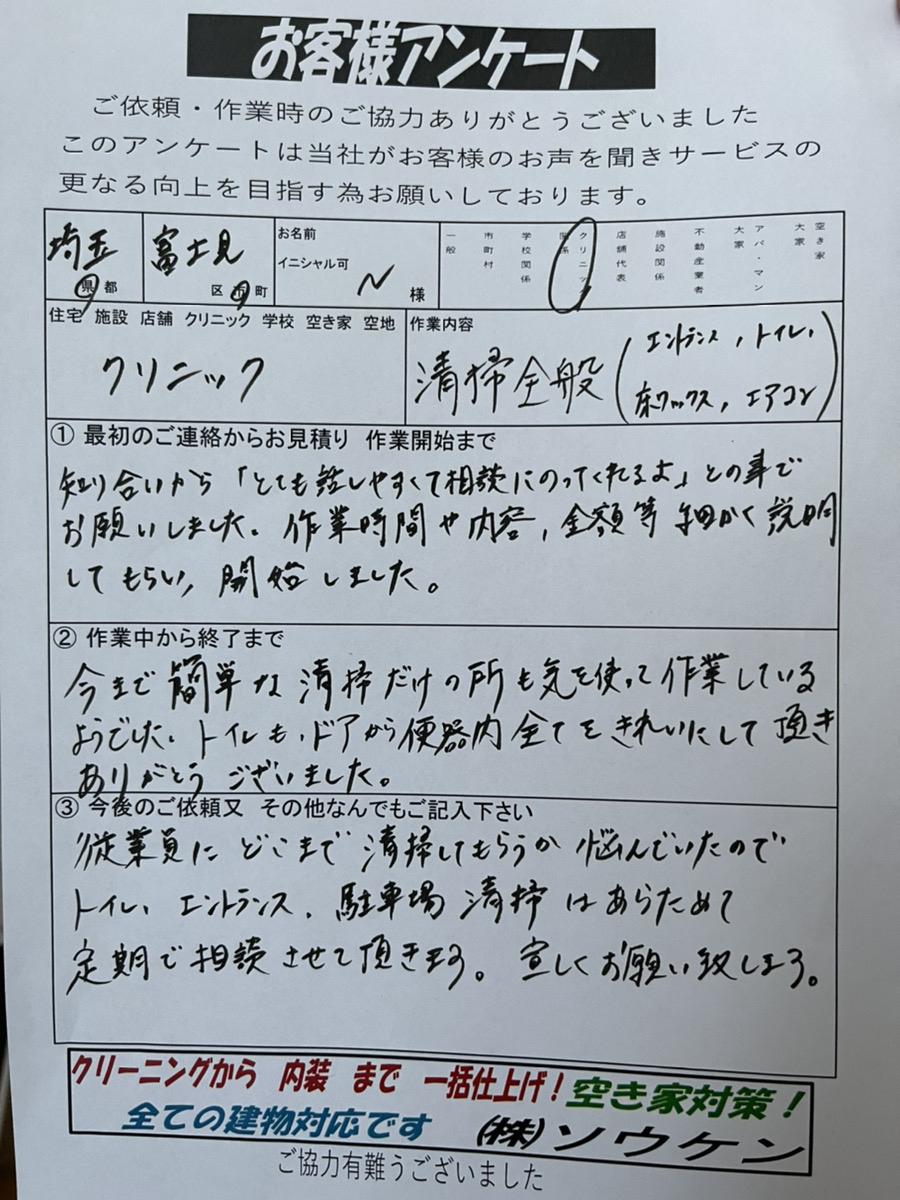 お客様アンケート
ご依頼・作業時のご協力ありがとうございました
このアンケートは当社がお客様のお声を聞きサービスの
更なる向上を目指す為お願いしております。
埼玉
県都
富士見
区市町
お名前
イニシャル可
N 様
一般
市町村
学校関係
関係
クリニック
店舗代表
施設関係
不動産業者
アパ・マン大家
空き家大家
住宅 施設 店舗 クリニック 学校 空き家 空地
クリニック
作業内容
清掃全般(エントランス,トイレ,
床ワックス,エアコン)
① 最初のご連絡からお見積り 作業開始まで
知り合いから「とても話しやすくて相談にのってくれるよ」との事で
お願いしました。作業時間や内容,金額等 細かく説明
してもらい,開始しました。
② 作業中から終了まで
今まで簡単な清掃だけの所も気を使って作業している
ようでした。トイレも、ドアから便器内全てをきれいにして頂き
ありがとうございました。
③ 今後のご依頼又 その他なんでもご記入下さい
従業員にどこまで清掃してもらうか悩んでいたので
トイレ、エントランス、駐車場清掃はあらためて
定期で相談させて頂きます。宜しくお願い致します。
クリーニングから 内装 まで 一括仕上げ!空き家対策!
全ての建物対応です (株)ソウケン
ご協力有難うございました